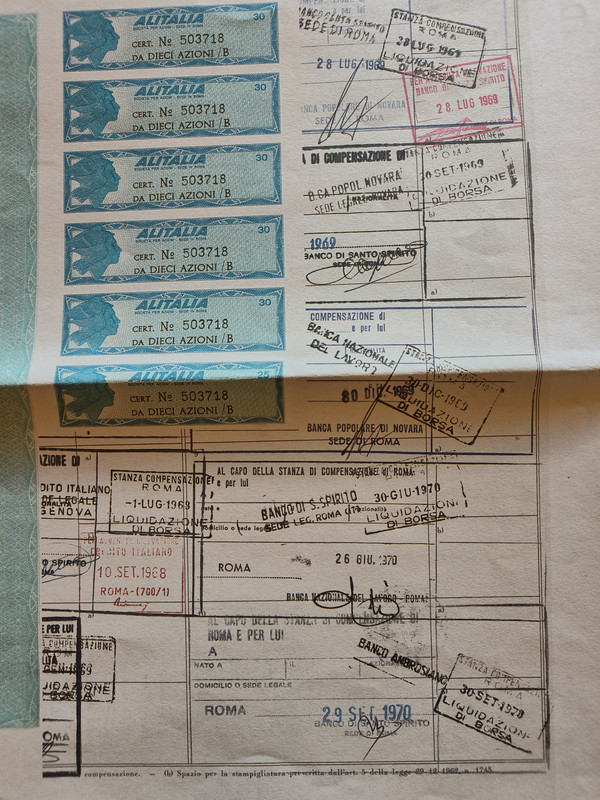 30
ALITALIA
SOCIETÀ PER AZIONI - SEDE IN ROMA
CERT. No 503718
DA DIECI AZIONI /B
30
ALITALIA
SOCIETÀ PER AZIONI - SEDE IN ROMA
CERT. No 503718
DA DIECI AZIONI /B
30
ALITALIA
SOCIETÀ PER AZIONI - SEDE IN ROMA
CERT. No 503718
DA DIECI AZIONI /B
30
ALITALIA
SOCIETÀ PER AZIONI - SEDE IN ROMA
CERT. No 503718
DA DIECI AZIONI /B
30
ALITALIA
SOCIETÀ PER AZIONI - SEDE IN ROMA
CERT. No 503718
DA DIECI AZIONI /B
25
ALITALIA
SOCIETÀ PER AZIONI - SEDE IN ROMA
CERT. No 503718
DA DIECI AZIONI /B
e per lui
SEDE DI ROMA
STANZA COMPENSAZIONE
ROMA
28 LUG 1969
LIQUIDAZIONE
DI BORSA
28 LUG 1969
BANCO DI SPIRITO
28. LUG 1969
BANCA POPOLARE DI NOVARA
SEDE ROMA
A DI COMPENSAZIONE DI
B.CA POPOL NOVARA
SEDE LEG. NOVARA
ROMA
SET.1969
LIQUIDAZIONE
DI BORSA
1969
BANCO DI SANTO SPIRITO
COMPENSAZIONE di
e per lui
BANCA NAZIONALE
DEL LAVORO
30 DIC 1969
LIQUIDAZIONE
DI BORSA
30 DIC. 1969
BANCA POPOLARE DI NOVARA
SEDE DI ROMA
AZIONE DI
CREDITO ITALIANO
SEDE LEGALE
GENOVA
STANZA COMPENSAZIONE
ROMA
-1-LUG-1968
LIQUIDAZIONE
DI BORSA
CREDITO ITALIANO
10.SET.1968
ROMA-(700/1)
AL CAPO DELLA STANZA DI COMPENSAZIONE DI ROMA
e per lui
BANCO DI S. SPIRITO
SEDE LEG. ROMA
domicilio o sede legale
30-GIU-1970
LIQUIDAZIONE
DI BORSA
ROMA
26 GIU. 1970
BANCA NAZIONALE DEL LAVORO - ROMA
AL CAPO DELLA STANZA DI COMPENSAZIONE DI
ROMA E PER LUI
A
NATO A
IL
DOMICILIO O SEDE LEGALE
ROMA
BANCO AMBROSIANO
29 SET 1970
BANCO DI SANTO SPIRITO
SEDE DI ROMA
ROMA
30-SET-1970
LIQUIDAZIONE
DI BORSA
E PER LUI
1969
LIQUIDAZIONE
DI BORSA
ROMA
compensazione. — (b) Spazio per la stampigliatura prescritta dall'art. 5 della legge 29-12-1962, n. 1745.